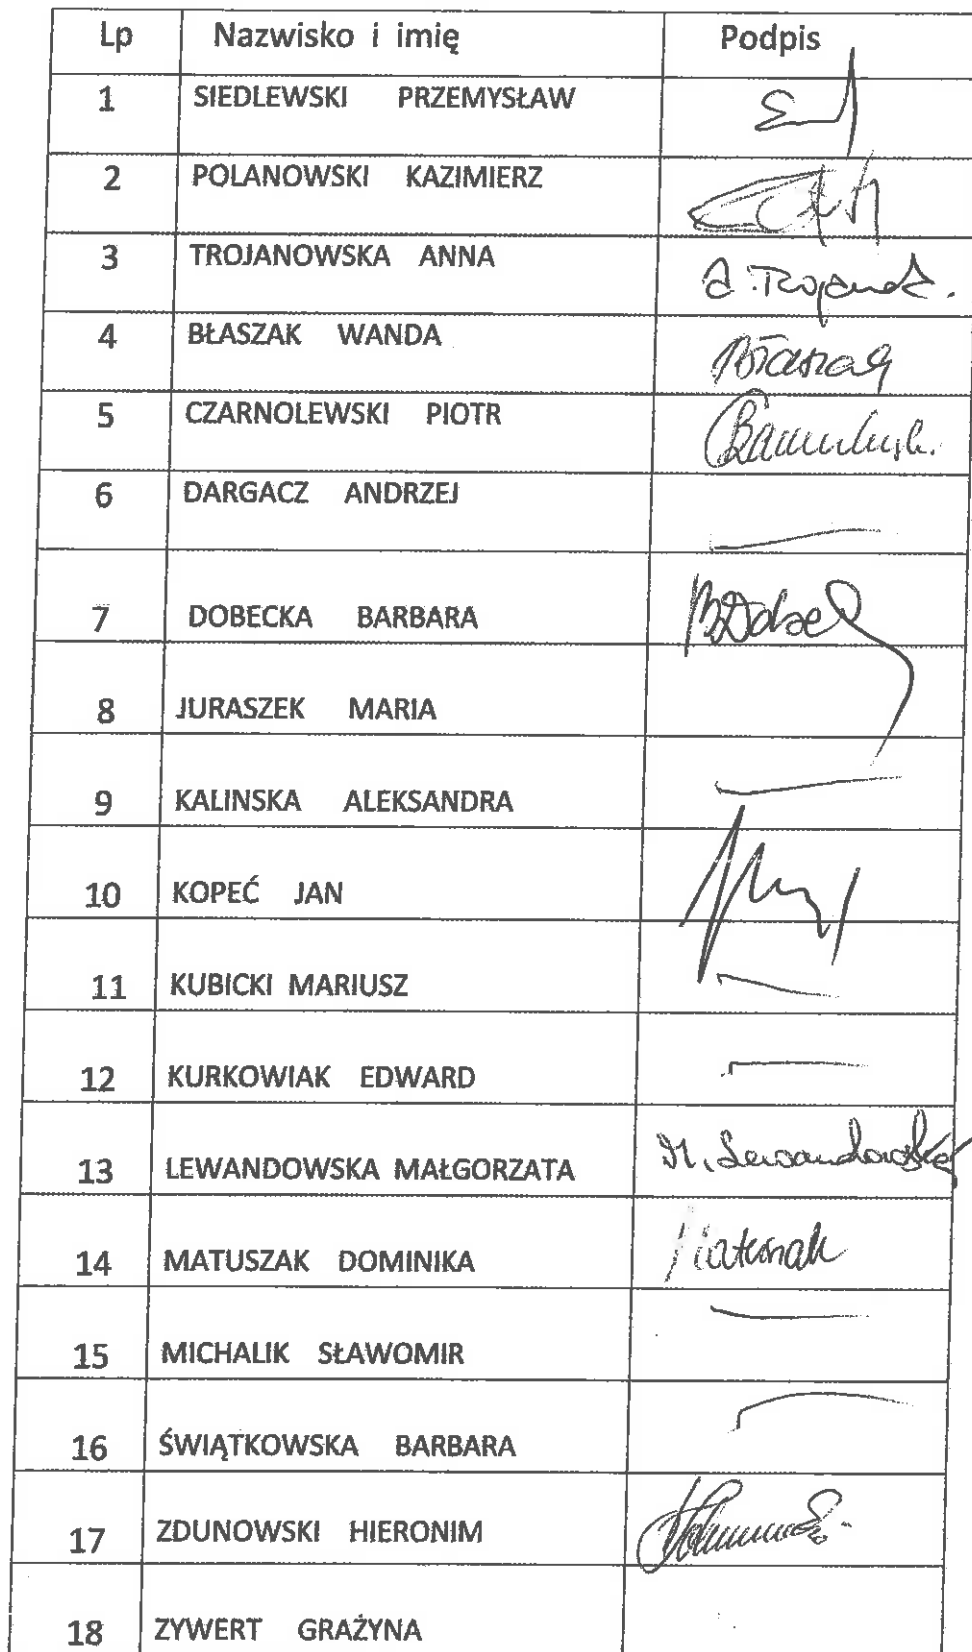 Lp Nazwisko i imię Podpis
1 SIEDLEWSKI PRZEMYSŁAW
2 POLANOWSKI KAZIMIERZ
3 TROJANOWSKA ANNA
4 BŁASZAK WANDA Błaszak
5 CZARNOLEWSKI PIOTR
6 DARGACZ ANDRZEJ
7 DOBECKA BARBARA
8 JURASZEK MARIA
9 KALINSKA ALEKSANDRA
10 KOPEĆ JAN
11 KUBICKI MARIUSZ
12 KURKOWIAK EDWARD
13 LEWANDOWSKA MAŁGORZATA M. Lewandowska
14 MATUSZAK DOMINIKA Matuszak
15 MICHALIK SŁAWOMIR
16 ŚWIĄTKOWSKA BARBARA
17 ZDUNOWSKI HIERONIM
18 ZYWERT GRAŻYNA